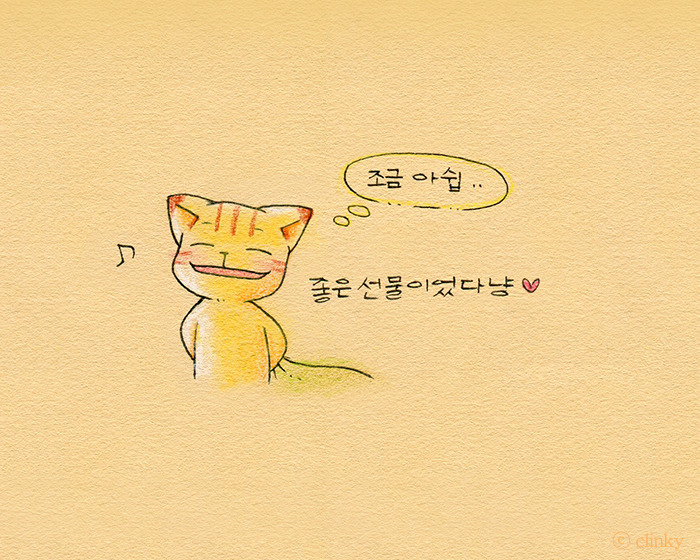 조금 아쉽..
좋은 선물이었다냥♥
ⓒ clinky